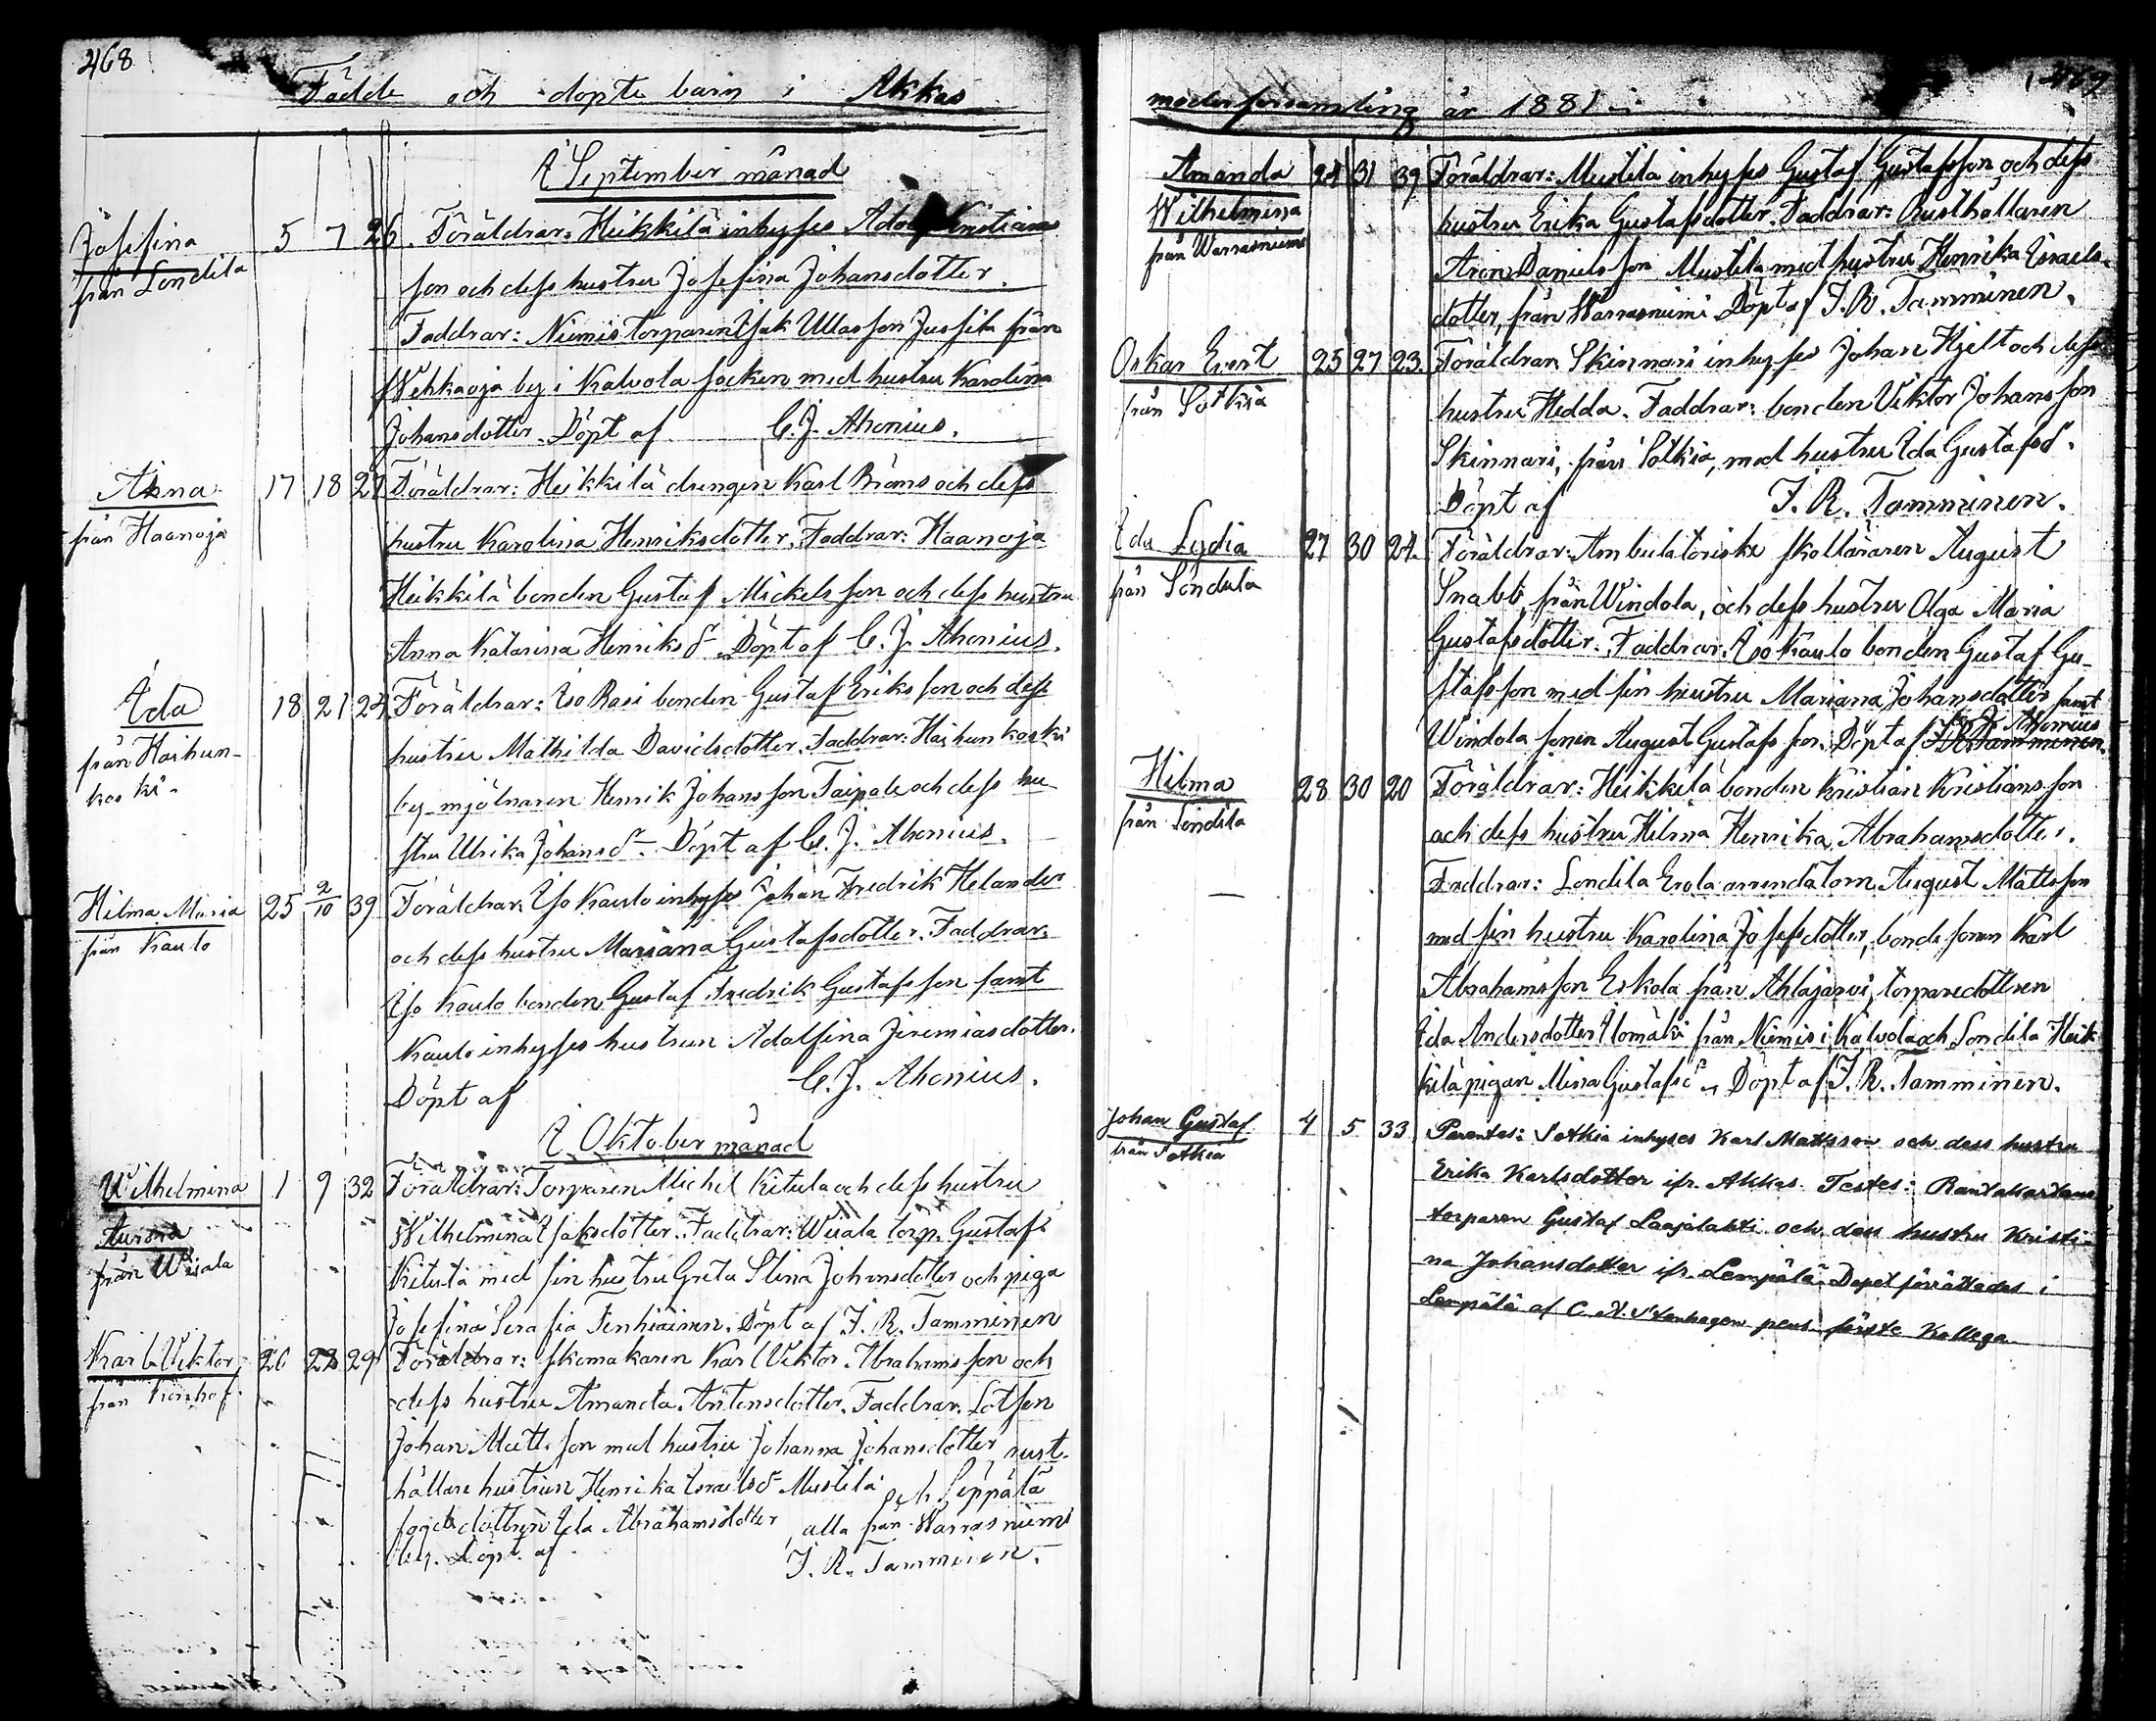 468
Födde och döpte barn i Akkas
I September månad
Josefina 5 7 26. Föräldrar: Heikkilä inhyses Adolf Kristians
från Sondila
son och dess hustru Josefina Johansdotter.
Faddrar: Niemis torparen Isak Ullasson Jussila från
Wehkaoja by i Kalvola socken med hustru Karolina
Johansdotter. Döpt af C. J. Ahonius.
Anna 17 18 27 Föräldrar: Heikkilä drengen Karl Bräms och dess
från Haanoja
hustru Karolina Henriksdotter. Faddrar: Haanoja
Heikkilä bonden Gustaf Mickelsson och dess hustru
Anna Katarina Henriksdr. Döpt af C. J. Ahonius.
Ida 18 21 24 Föräldrar: Iso Rasi bonden Gustaf Eriksson och dess
från Haihun-
koski.
hustru Mathilda Davidsdotter. Faddrar: Haihunkoski
by mjölnaren Henrik Johansson Taipale och dess hu
stru Ulrika Johansdr. Döpt af C. J. Ahonius.
Hilma Maria 25 2/10 39 Föräldrar: Iso Kaulo inhyses Johan Fredrik Helander
från Kaulo
och dess hustru Mariana Gustafsdotter. Faddrar:
Iso Kaulo bonden Gustaf Fredrik Gustafsson samt
Kaulo inhyses hustrun Adolfina Jeremiasdotter.
Döpt af C. J. Ahonius.
I Oktober månad
Wilhelmina 1 9 32 Föräldrar: Torparen Michel Kitula och dess hustru
Aurora
från Wiiala
Wilhelmina Isaksdotter. Faddrar: Wiiala torp. Gustaf
Kitula med sin hustru Greta Stina Johansdotter och piga
Josefina Serafia Tenhiäinen. Döpt af J. R. Tamminen
Karl Viktor 20 22 29 Föräldrar: skomakaren Karl Viktor Abrahamsson och
från
dess hustru Amanda Antonsdotter. Faddrar: Lotsen
Johan Mattsson med hustru Johanna Johansdotter, rust-
hållare hustrun Henrika Israelsdr Mustila och Seppälä
dottren Ida Abrahamsdotter, alla från Warrasniemi
by. Döpt af J. R. Tamminen.
469
moderförsamling år 1881
Amanda 24 31 39 Föräldrar: Mustila inhyses Gustaf Gustafsson och dess
Wilhelmina
från Warrasniemi
hustru Erika Gustafsdotter. Faddrar: Rusthållaren
Aron Danielsson Mustila med hustru Henrika Israels-
dotter, från Warrasniemi Döpt af J. R. Tamminen.
Oskar Evert 25 27 23. Föräldrar Skinnari inhyses Johan Hjelt och dess
från Sotkia
hustru Hedda. Faddrar: bonden Viktor Johansson
Skinnari, från Sotkia, med hustru Ida Gustafsdr.
Döpt af J. R. Tamminen.
Ida Lydia 27 30 24. Föräldrar: Ambulatoriske skolläraren August
från Sondila
Snabb, från Windola, och dess hustru Olga Maria
Gustafsdotter. Faddrar: Iso Kaulo bonden Gustaf Gu-
stafsson med sin hustru Mariana Johansdotter samt
Windola sonen August Gustafsson. Döpt af J. R. Tamminen. C. J. Ahonius
Hilma 28 30 20 Föräldrar: Heikkilä bonden Kristian Kristiansson
från Sondila
och dess hustru Hilma Henrika Abrahamsdotter.
Faddrar: Sondila Erola arrendatorn August Mattsson
med sin hustru Karolina Josefsdotter, bonde sonen Karl
Abrahamsson Eskola från Ahlajärvi, torparedottren
Ida Andersdotter Ilomäki från Niemis i Kalvola och Sondila Heik
kilä pigan Mina Gustafsdr. Döpt af J. R. Tamminen.
Johan Gustaf 4 5 33 Parentes: Sotkia inhyses Karl Mattsson och dess hustru
från Sotkia
Erika Karlsdotter ifr. Akkas. Testes: Rantakartano
torparen Gustaf Laajalahti och dess hustru Kristi-
na Johansdotter ifr. Lempälä. Dopet förrättades i
Lempälä af C. A. Stenhagen pens. förste Kollega